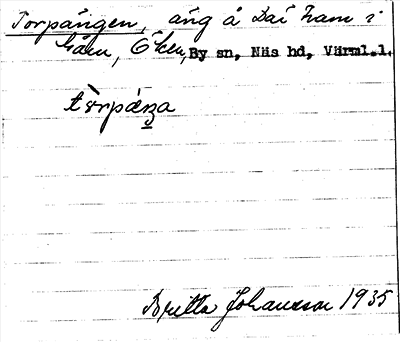 Torpängen, äng å Dai ham i
By sn, Näs hd, Värml.l.
tòrpáŋa
Britta Johansson 1935